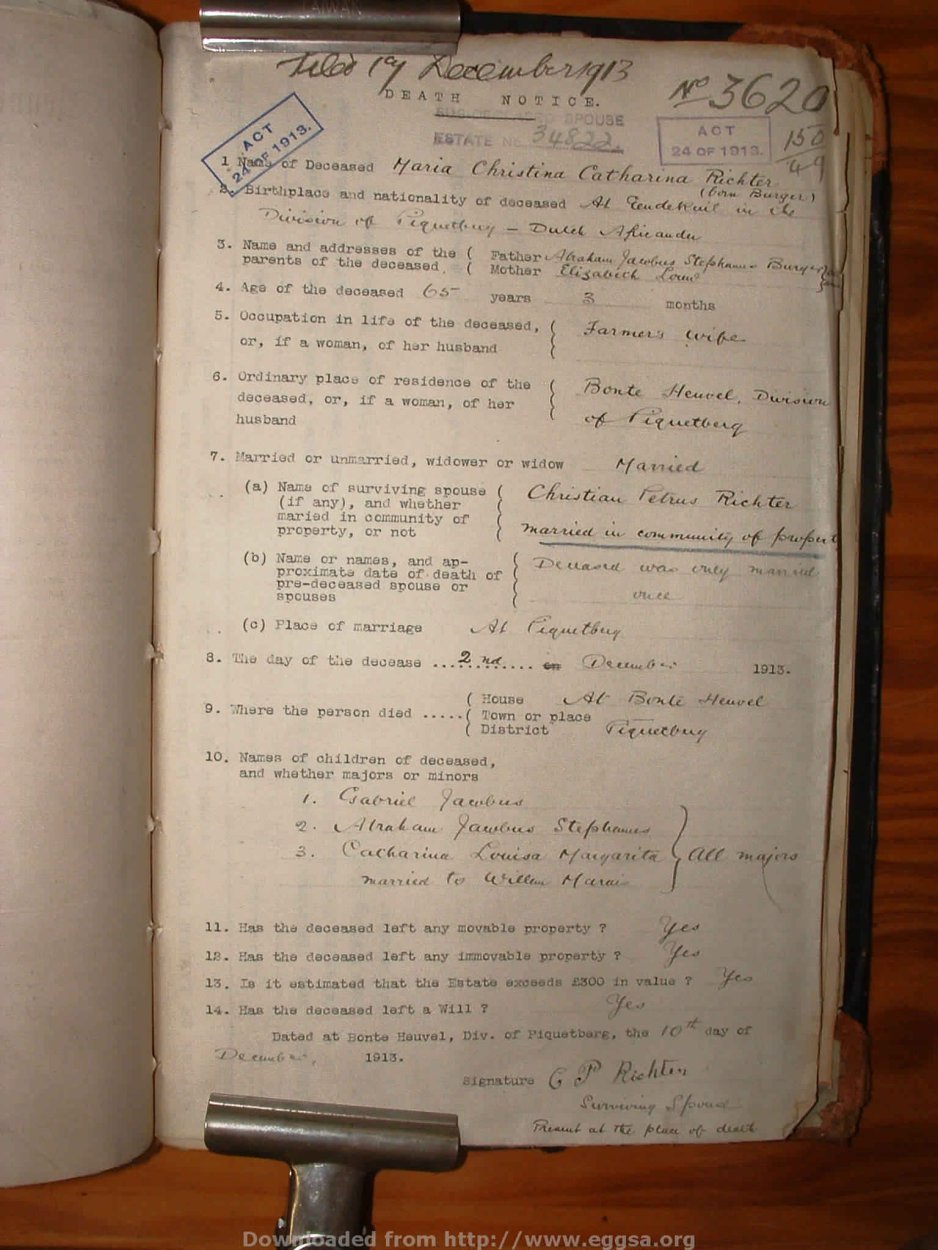 TAIWAN
Filed 19 December 1913
DEATH NOTICE.
No 3620
SPOUSE
ESTATE No. 34822.
ACT
24 OF 1913.
ACT
24 OF 1913.
150
49
1 Name of Deceased Maria Christina Catharina Richter
(born Burger)
2. Birthplace and nationality of deceased At in the
Division of Piquetberg - Dutch Africander
3. Name and addresses of the ( Father Abraham Jacobus Stephanus Burger
parents of the deceased, ( Mother Elizabeth Louw
4. Age of the deceased 65 years 3 months
5. Occupation in life of the deceased, ( Farmer's wife
or, if a woman, of her husband (
6. Ordinary place of residence of the ( Bonte Heuvel, Division
deceased, or, if a woman, of her (
husband of Piquetberg
7. Married or unmarried, widower or widow Married
(a) Name of surviving spouse ( Christian Petrus Richter
(if any), and whether (
maried in community of ( married in community of propert
property, or not (
(b) Name or names, and ap- ( Deceased was only married
proximate date of death of (
pre-deceased spouse or ( once
spouses (
(c) Place of marriage At Piquetberg
8. The day of the decease ...2nd.... on December 1913.
9. Where the person died .....( House At Bonte Heuvel
( Town or place
( District Piquetberg
10. Names of children of deceased,
and whether majors or minors
1. Gabriel Jacobus
2. Abraham Jacobus Stephanus
3. Catharina Louisa Margarita All majors
married to Willem Marais
11. Has the deceased left any movable property ? Yes
12. Has the deceased left any immovable property ? Yes
13. Is it estimated that the Estate exceeds £300 in value ? Yes
14. Has the deceased left a Will ? Yes
Dated at Bonte Heuvel, Div. of Piquetberg, the 10th day of
December, 1913.
Signature C P Richter
Surviving Spouse
Present at the place of death
Downloaded from http://www.eggsa.org